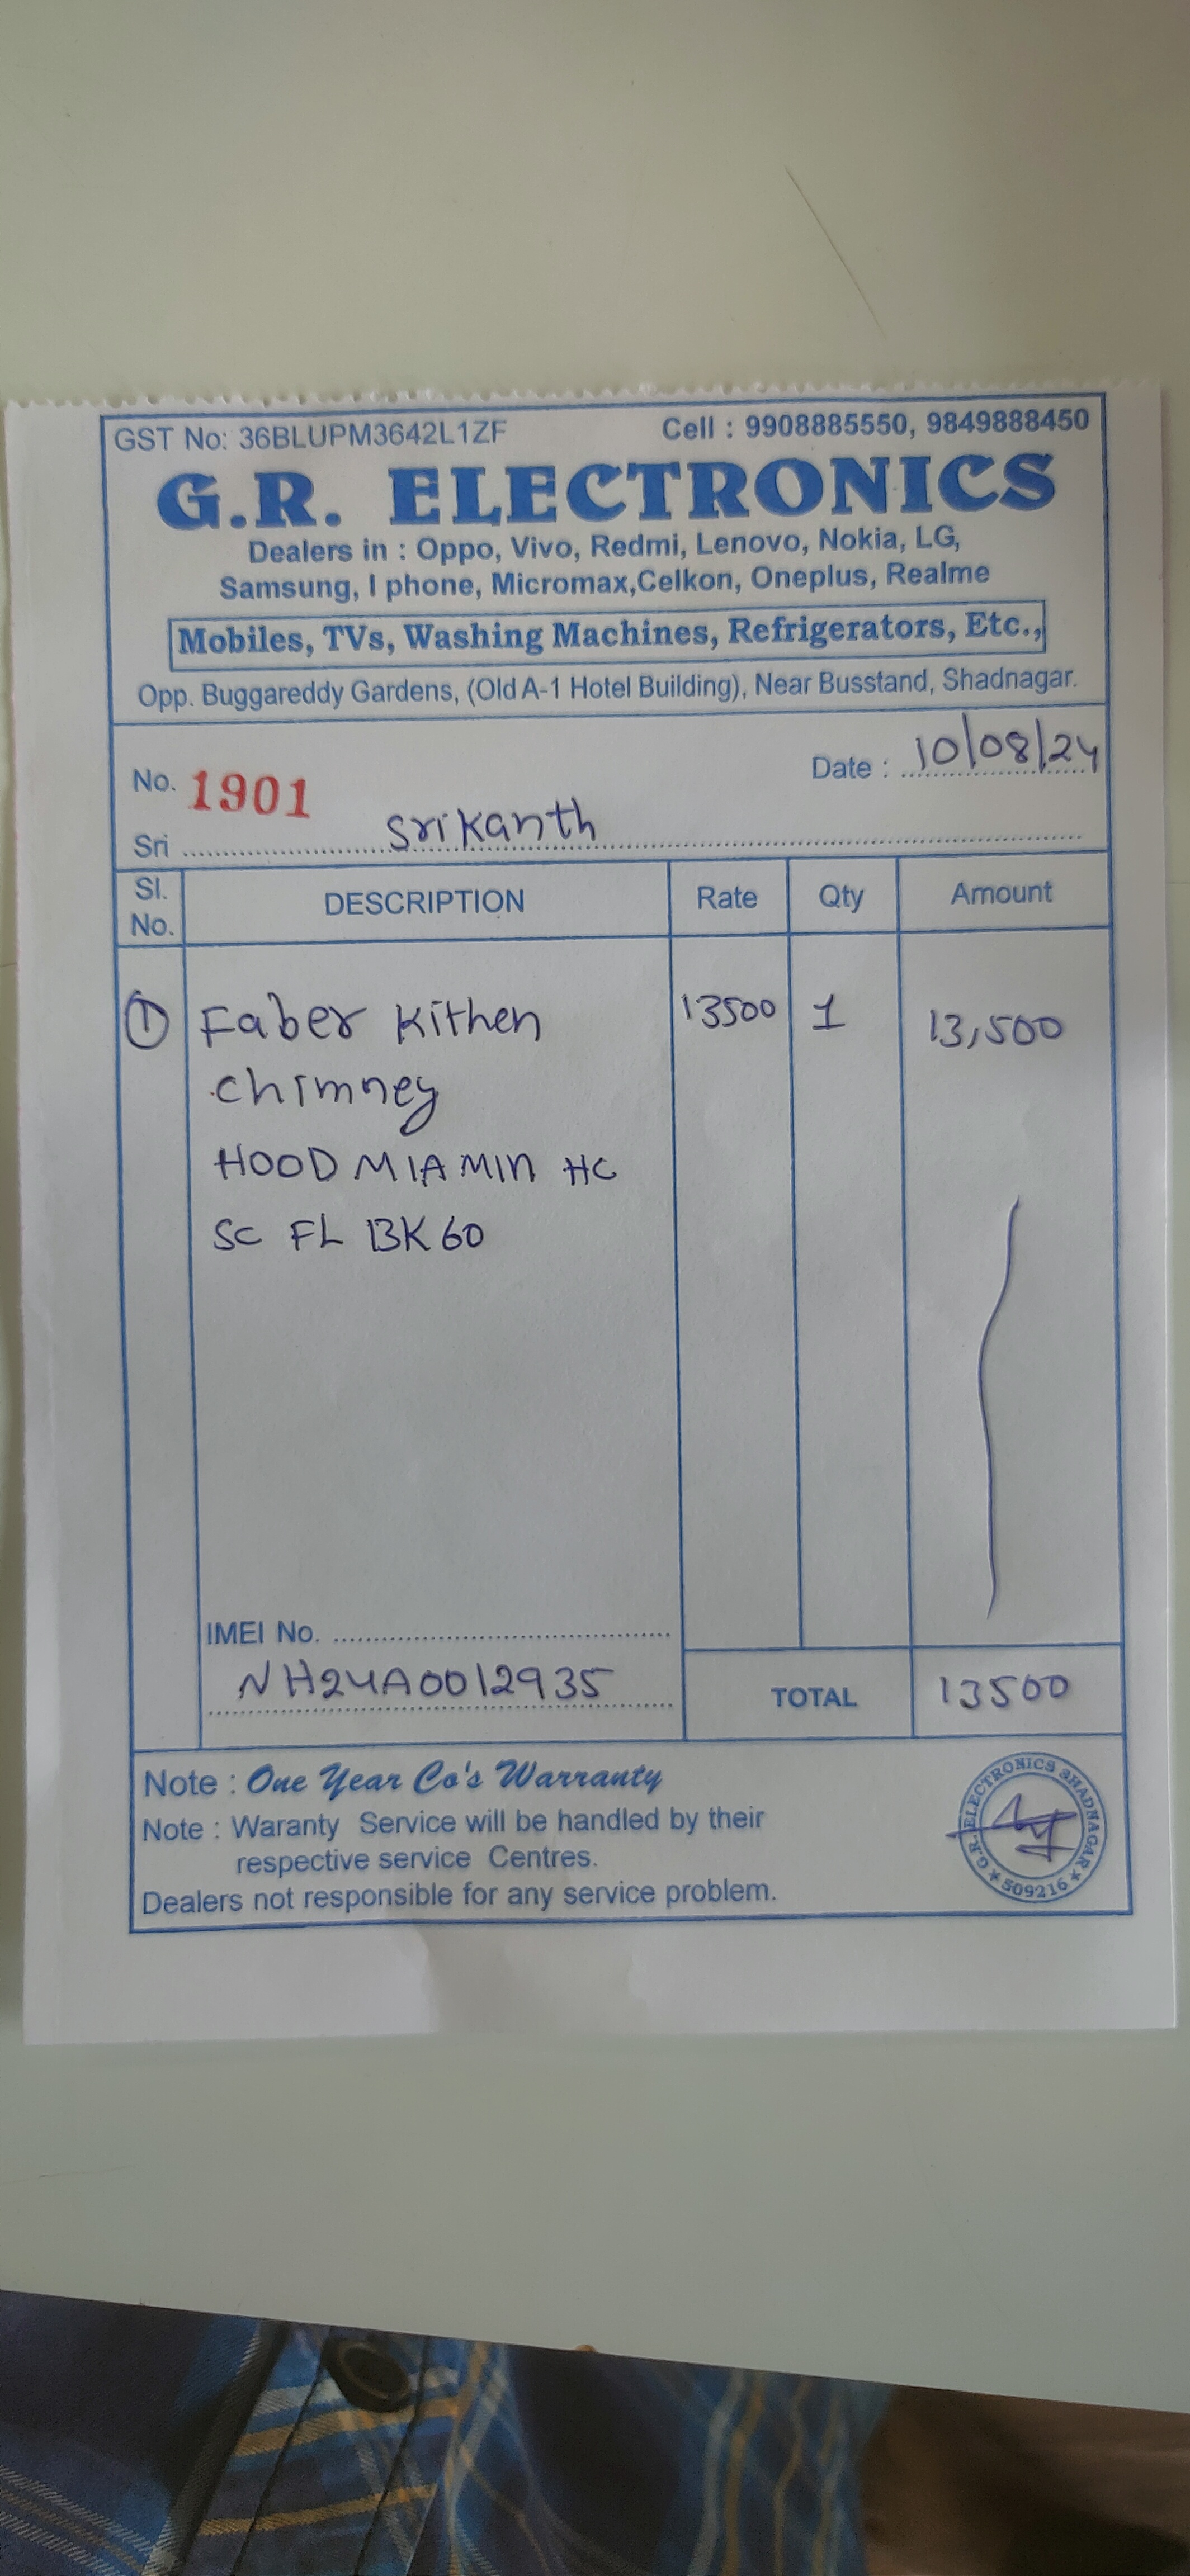 GST No: 36BLUPM3642L1ZF Cell : 9908885550, 9849888450
G.R. ELECTRONICS
Dealers in : Oppo, Vivo, Redmi, Lenovo, Nokia, LG,
Samsung, I phone, Micromax,Celkon, Oneplus, Realme
Mobiles, TVs, Washing Machines, Refrigerators, Etc.,
Opp. Buggareddy Gardens, (Old A-1 Hotel Building), Near Busstand, Shadnagar.
No. 1901 Date : 10/08/24
Sri Srikanth
Sl. No. DESCRIPTION Rate Qty Amount
1 Faber Kithen 13500 1 13,500
Chimney
HOOD MIAMIN HC
SC FL BK 60
IMEI No.
NH24A0012935 TOTAL 13500
Note : One Year Co's Warranty
Note : Waranty Service will be handled by their
respective service Centres.
Dealers not responsible for any service problem.
G.R. ELECTRONICS SHADNAGAR * 509216 *